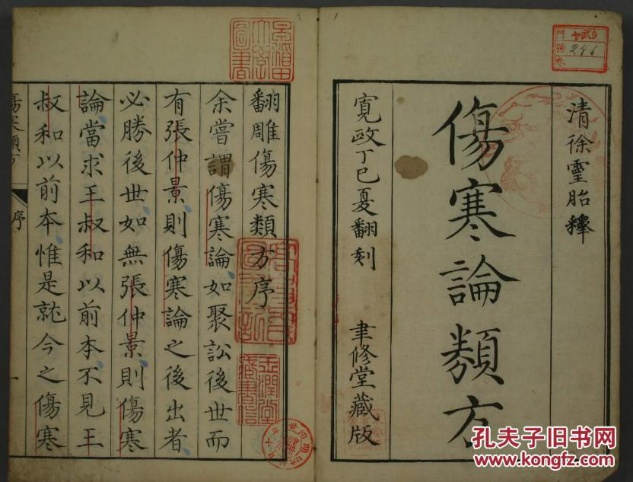 清徐靈胎釋
傷寒論類方
寬政丁巳夏翻刻 聿修堂藏版
翻雕傷寒類方序
余嘗謂傷寒論如聚訟後世而
有張仲景則傷寒論之後出者
必勝後世如無張仲景則傷寒
論當求王叔和以前本不見王
叔和以前本惟是就今之傷寒
傷寒類方 序 一
孔夫子旧书网
www.kongfz.com